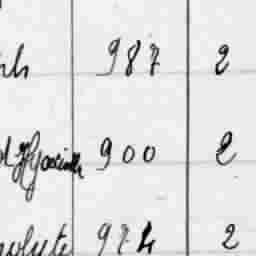 987 2
d'Hyacinth 900 2
polyte 974 2